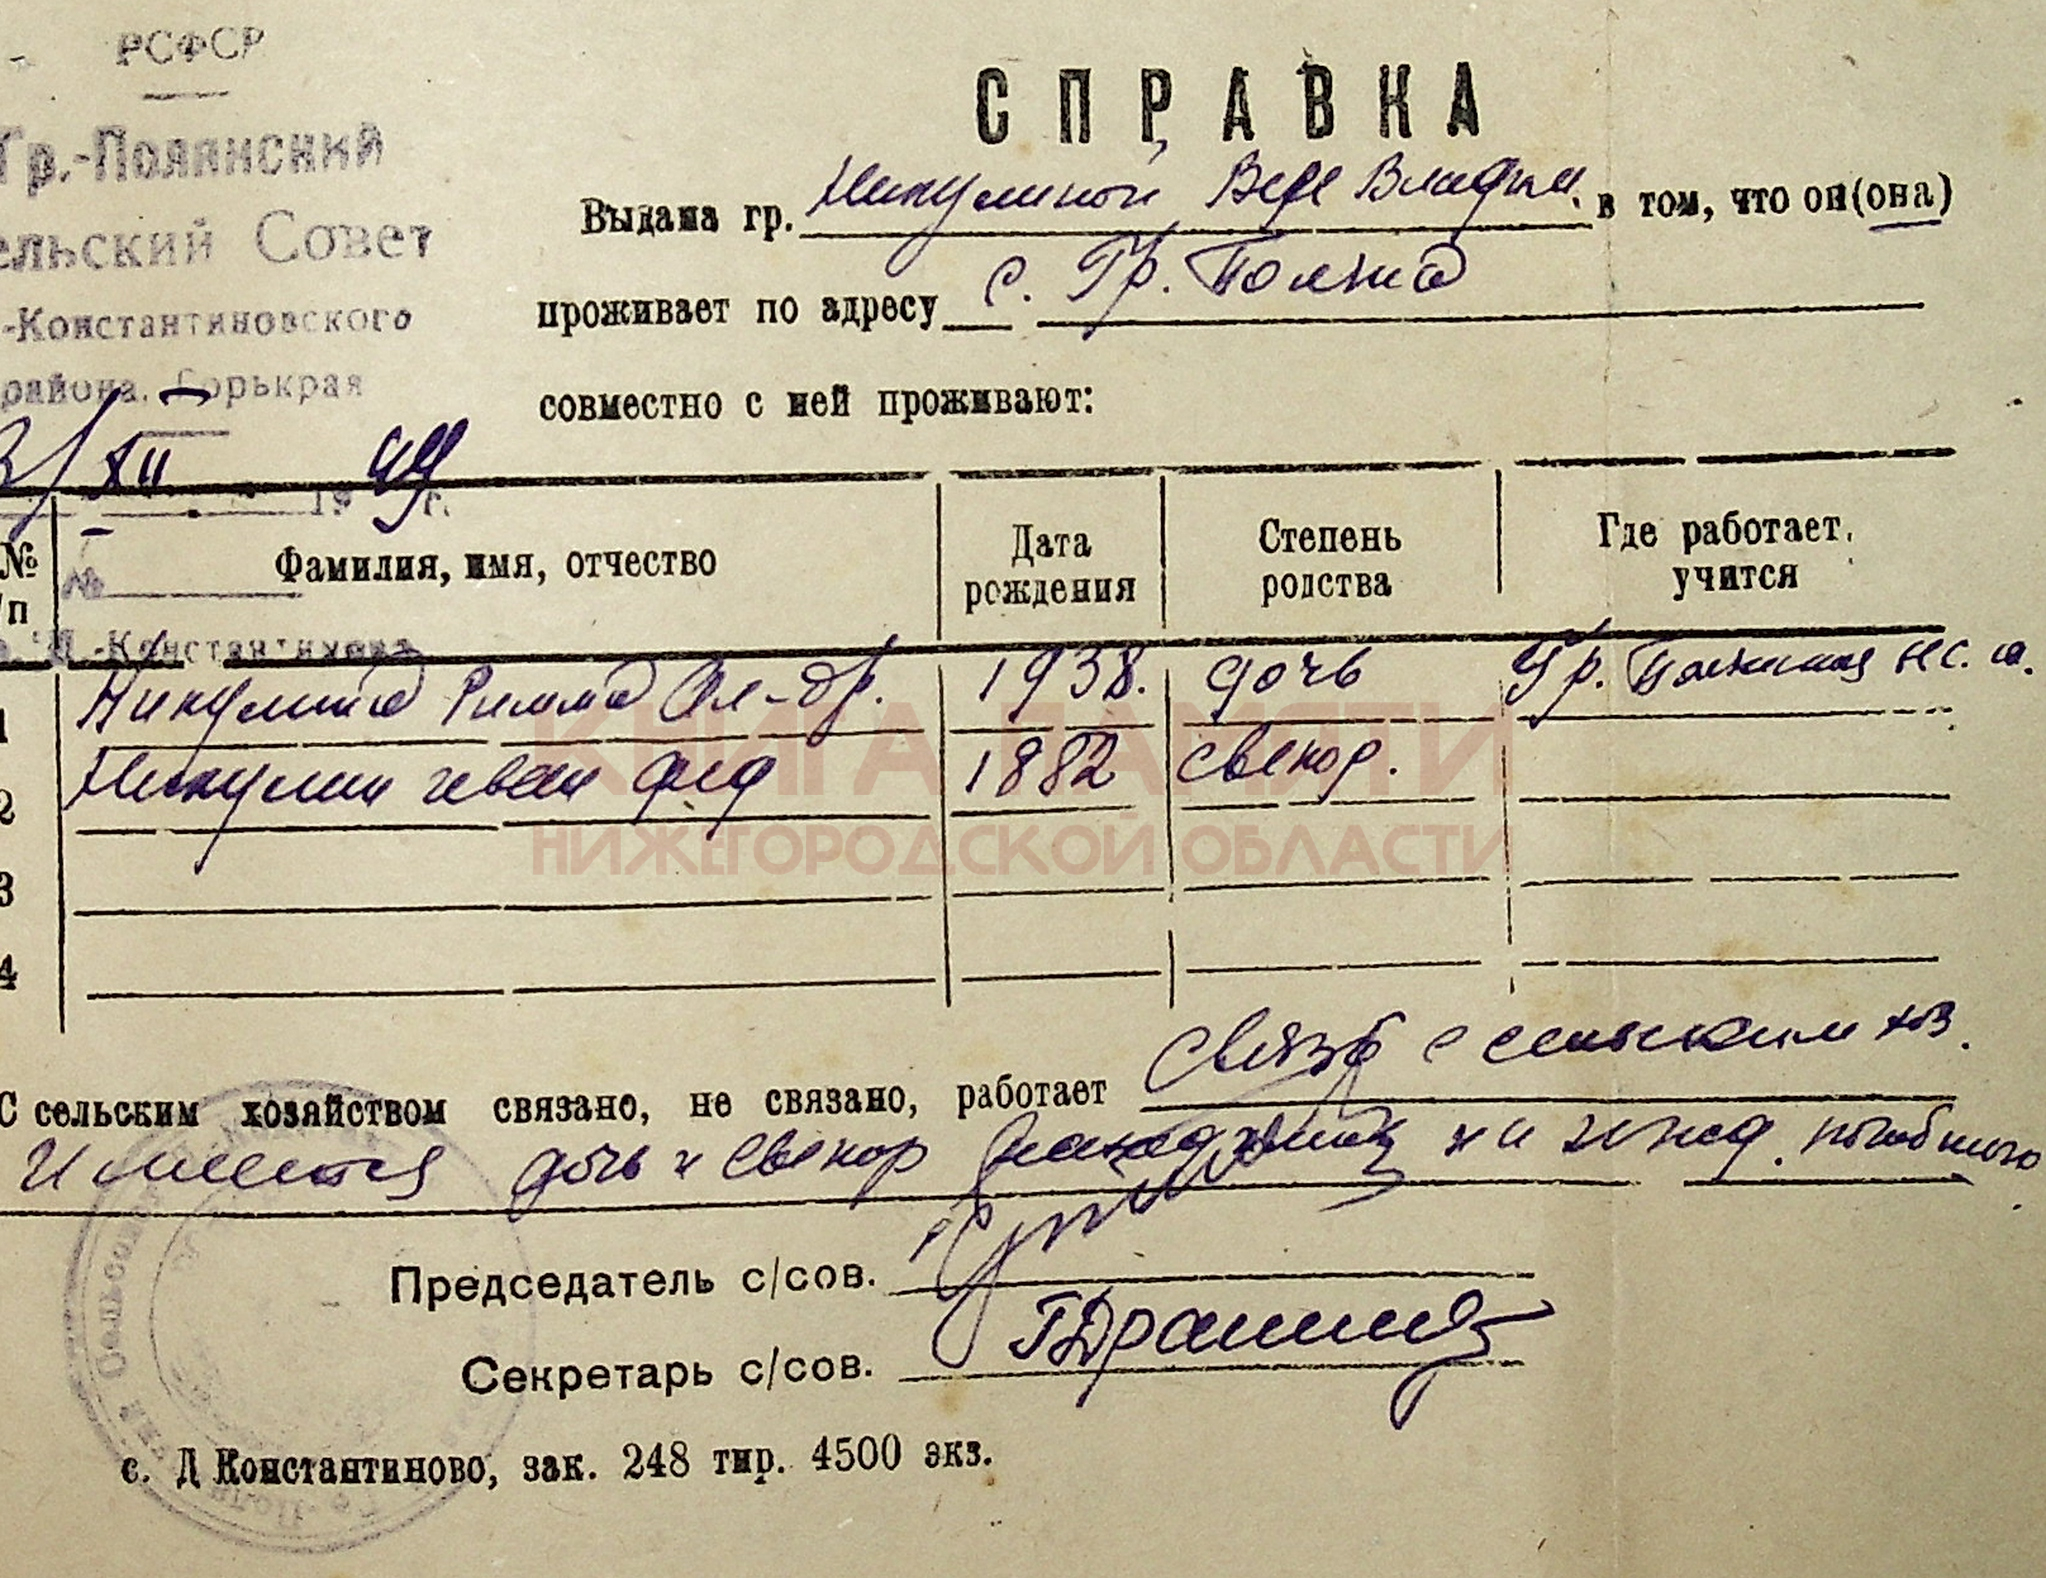 РСФСР
Гр.-Полянский
ельский Совет
-Константиновского
района, Горькрая
31 XII 1949 г.
№
Д.-Константиново
СПРАВКА
Выдана гр. Никулиной Вере Владим. в том, что он(она)
проживает по адресу с. Гр. Поляна
совместно с ней проживают:
№ /п Фамилия, имя, отчество Дата рождения Степень родства Где работает, учится
1 Никулина Римма Ал-др. 1938. дочь Гр. Полянская с.
2 Никулин Иван Фед 1882 свекор.
3
4
С сельским хозяйством связано, не связано, работает связь с сельским хоз.
Имеются дочь и свекор на ижд. погибшего
Председатель с/сов.
Секретарь с/сов.
с. Д Константиново, зак. 248 тир. 4500 экз.
КНИГА ПАМЯТИ
НИЖЕГОРОДСКОЙ ОБЛАСТИ